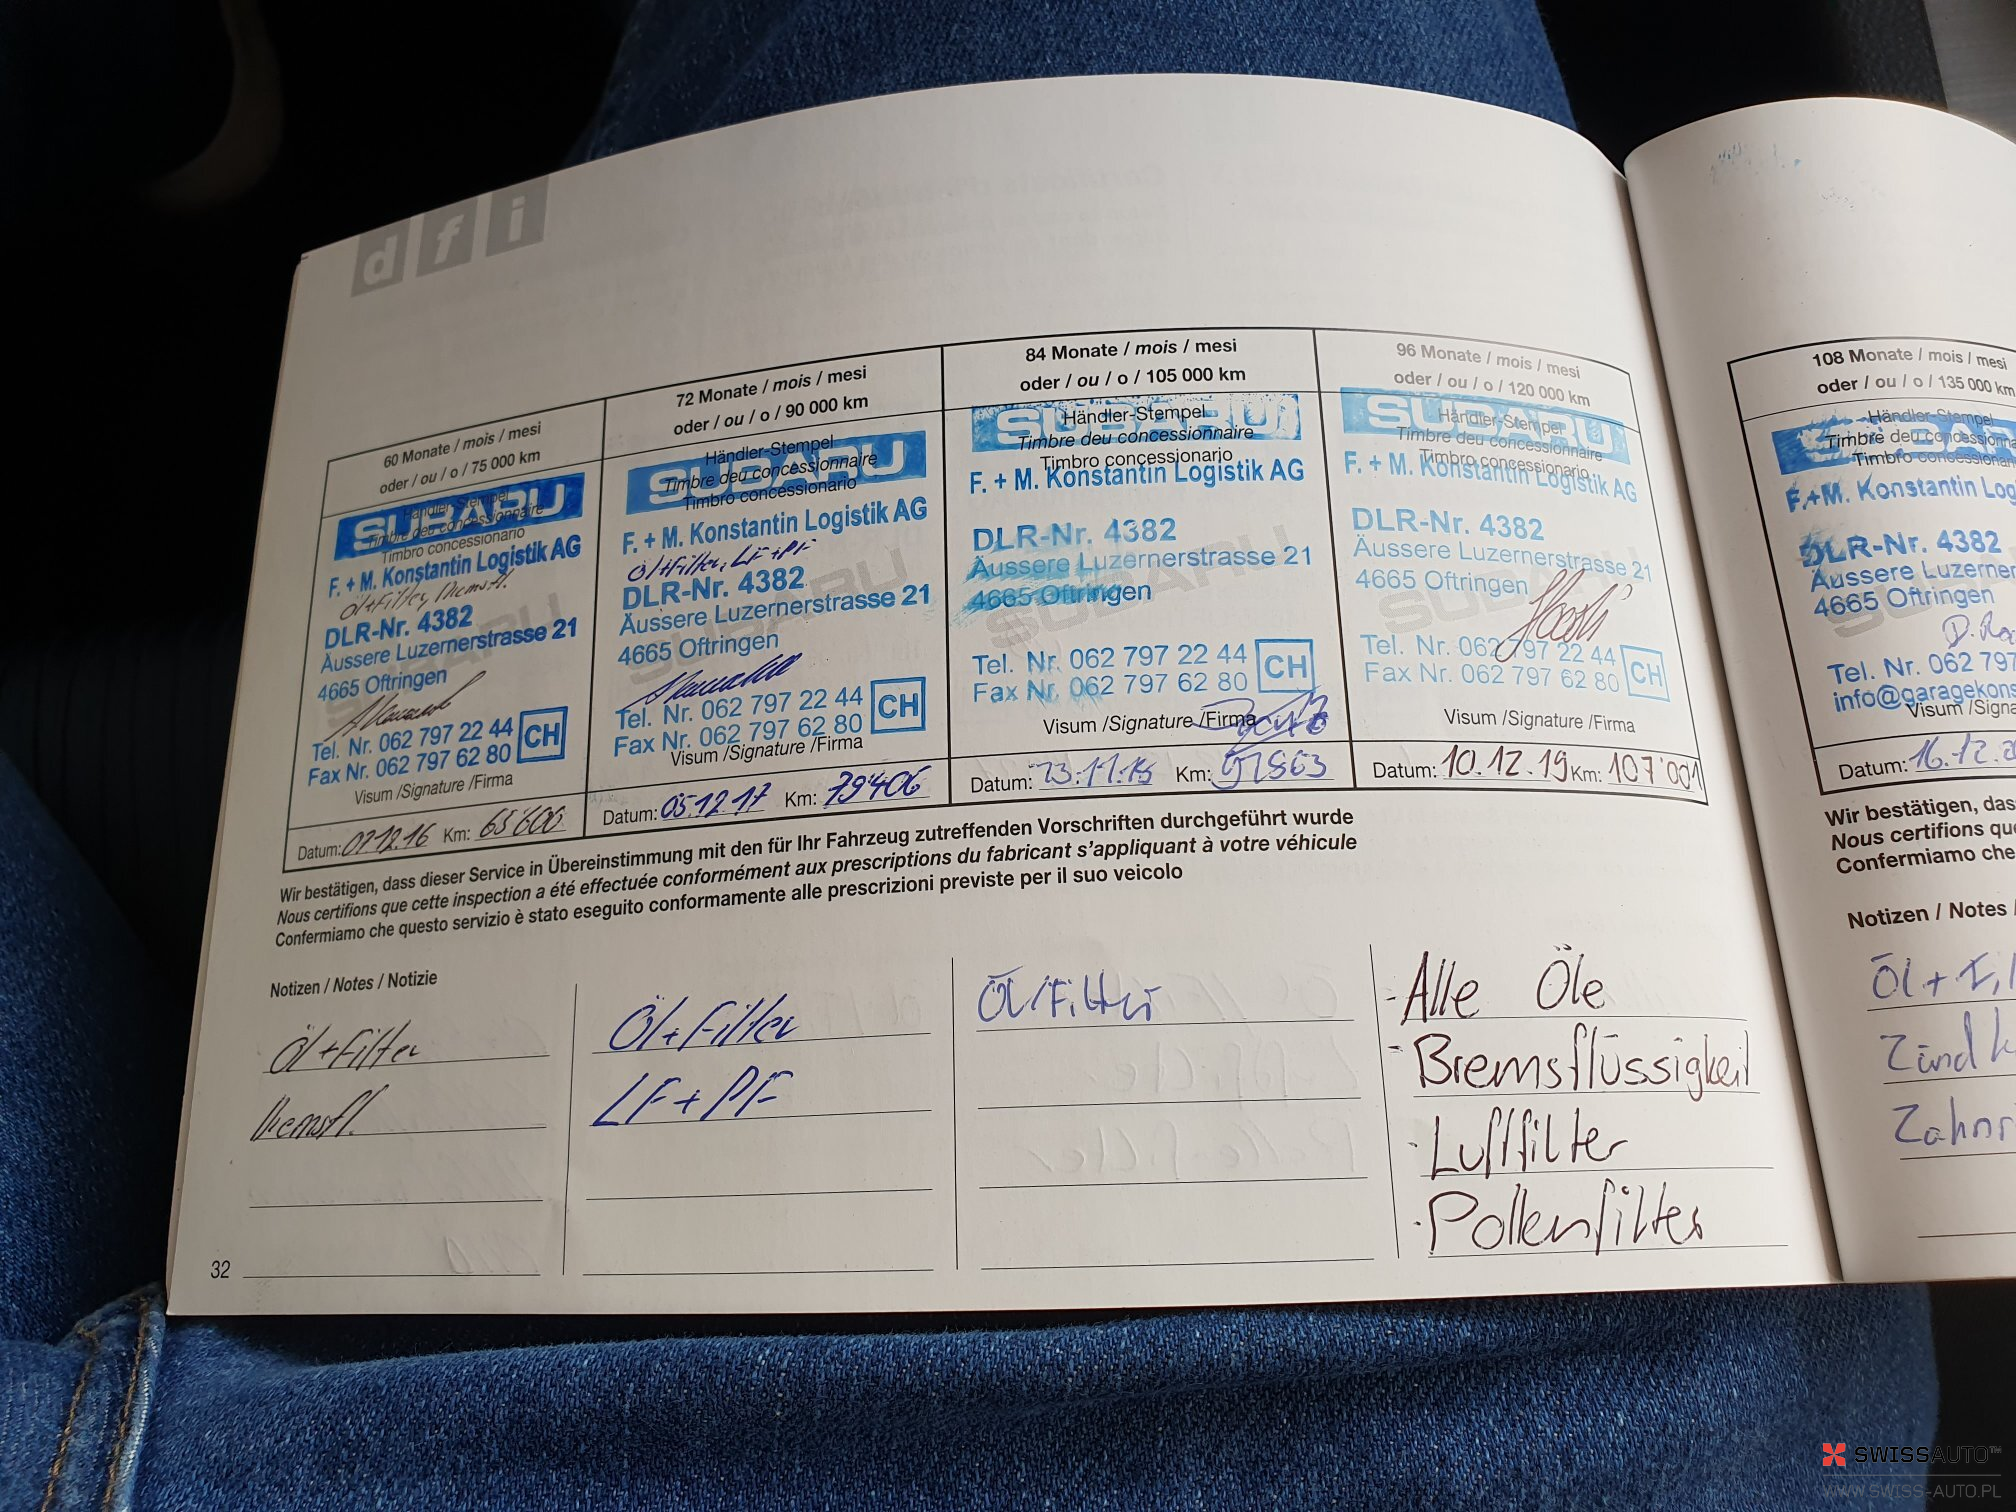 d f i
60 Monate / mois / mesi
oder / ou / o / 75 000 km
Händler-Stempel
Timbre deu concessionnaire
Timbro concessionario
SUBARU
F. + M. Konstantin Logistik AG
Öl+Filter, Bremsfl.
DLR-Nr. 4382
Äussere Luzernerstrasse 21
4665 Oftringen
Tel. Nr. 062 797 22 44
Fax Nr. 062 797 62 80
CH
Visum /Signature /Firma
Datum: 07.12.16 Km: 65'600
72 Monate / mois / mesi
oder / ou / o / 90 000 km
Händler-Stempel
Timbre deu concessionnaire
Timbro concessionario
SUBARU
F. + M. Konstantin Logistik AG
Öl+Filter, LF+PF
DLR-Nr. 4382
Äussere Luzernerstrasse 21
4665 Oftringen
Tel. Nr. 062 797 22 44
Fax Nr. 062 797 62 80
CH
Visum /Signature /Firma
Datum: 05.12.17 Km: 79'406
84 Monate / mois / mesi
oder / ou / o / 105 000 km
Händler-Stempel
Timbre deu concessionnaire
Timbro concessionario
SUBARU
F. + M. Konstantin Logistik AG
DLR-Nr. 4382
Äussere Luzernerstrasse 21
4665 Oftringen
Tel. Nr. 062 797 22 44
Fax Nr. 062 797 62 80
CH
Visum /Signature /Firma
Datum: 23.11.18 Km:
96 Monate / mois / mesi
oder / ou / o / 120 000 km
Händler-Stempel
Timbre deu concessionnaire
Timbro concessionario
SUBARU
F. + M. Konstantin Logistik AG
DLR-Nr. 4382
Äussere Luzernerstrasse 21
4665 Oftringen
Tel. Nr. 062 797 22 44
Fax Nr. 062 797 62 80
CH
Visum /Signature /Firma
Datum: 10.12.19 Km: 107'001
Wir bestätigen, dass dieser Service in Übereinstimmung mit den für Ihr Fahrzeug zutreffenden Vorschriften durchgeführt wurde
Nous certifions que cette inspection a été effectuée conformément aux prescriptions du fabricant s'appliquant à votre véhicule
Confermiamo che questo servizio è stato eseguito conformamente alle prescrizioni previste per il suo veicolo
Notizen / Notes / Notizie
Öl+Filter
Bremsfl.
Öl+Filter
LF+PF
Öl/Filter
- Alle Öle
- Bremsflüssigkeit
- Luftfilter
- Pollenfilter
32
108 Monate / mois / mesi
oder / ou / o / 135 000 km
Händler-Stempel
Timbre deu concessionn
Timbro concessionario
SUBARU
F.+M. Konstantin Log
DLR-Nr. 4382
Äussere Luzernerst
4665 Oftringen
Tel. Nr. 062 797
info@garagekons
Visum /Signa
Datum: 16.12.2
Wir bestätigen, das
Nous certifions que
Confermiamo che
Notizen / Notes /
Öl + Fil
Zündk
Zahnr
SWISSAUTO™
WWW.SWISS-AUTO.PL